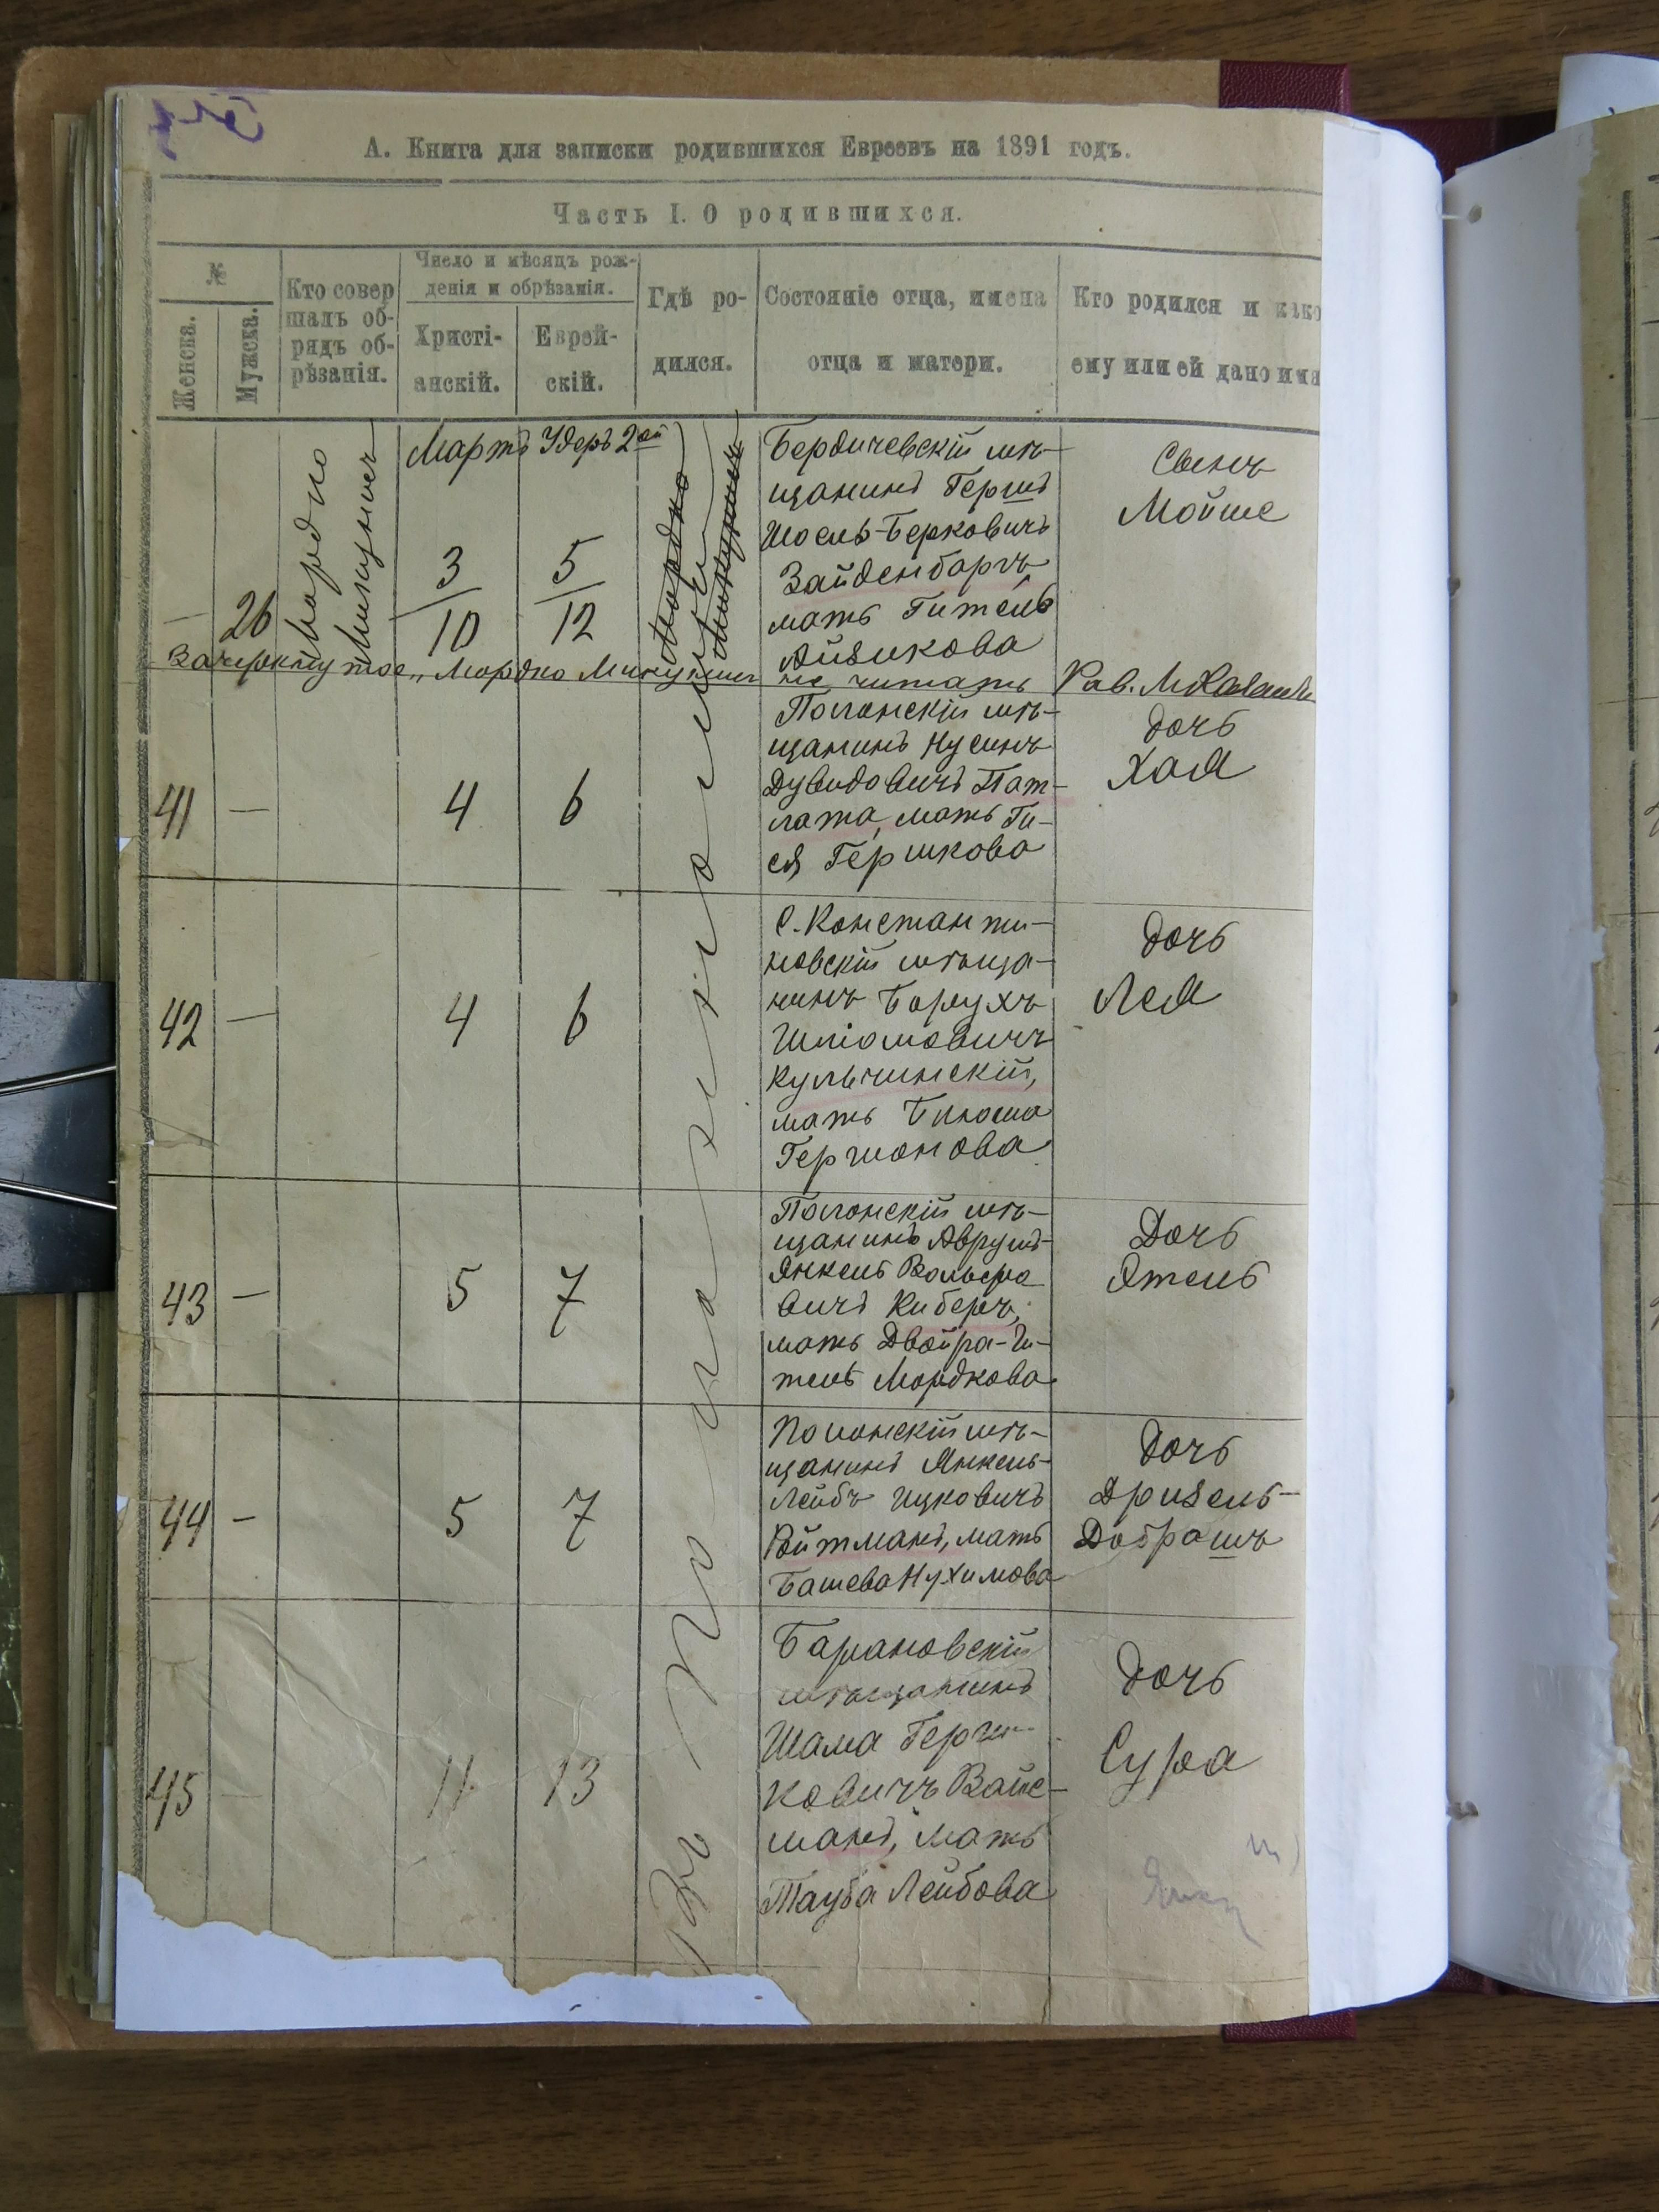 А. Книга для записки родившихся Евреевъ на 1891 годъ.
Часть I. О родившихся.
№
Женска.
Мужска.
Кто совер
шалъ об-
рядъ об-
рѣзанія.
Число и мѣсяцъ рож-
денія и обрѣзанія.
Христі-
анскій.
Еврей-
скій.
Гдѣ ро-
дился.
Состояніе отца, имена
отца и матери.
Кто родился и како
ему или ей дано имя
—
26
Мордко
Мартъ
3
10
Удеръ 2ой
5
12
Мордко
Въ Полонномъ
Бердичевскій мѣ-
щанинъ Гершъ
Шоель-Берковичъ
Зайденборгъ,
мать Гитель
Айзикова
Сынъ
Мойше
Зачеркнутое „Мордко
не читать
Рав.
41
—
4
6
Полонскій мѣ-
щанинъ Нусинъ
Дувидовичъ Пат-
лата, мать Ги-
ся Гершкова
дочь
Хая
42
—
4
6
С. Константи-
новскій мѣща-
нинъ Борухъ
Шліомовичъ
Кульчинскій,
мать
Гершонова
дочь
Лея
43
—
5
7
Полонскій мѣ-
щанинъ Аврумъ-
Янкель Вольфо
вичъ Киберъ,
мать Двойра-Ги-
тель Мордкова
Дочь
Этель
44
—
5
7
Полонскій мѣ-
щанинъ Янкель-
Лейбъ Ицковичъ
Ройтманъ, мать
Башева Нухимова
Дочь
Дризель-
Добрашъ
45
—
11
13
Барановскій
мѣщанинъ
Шама Герш-
ковичъ Вайс-
манъ, мать
Тауба Лейбова
дочь
Сура